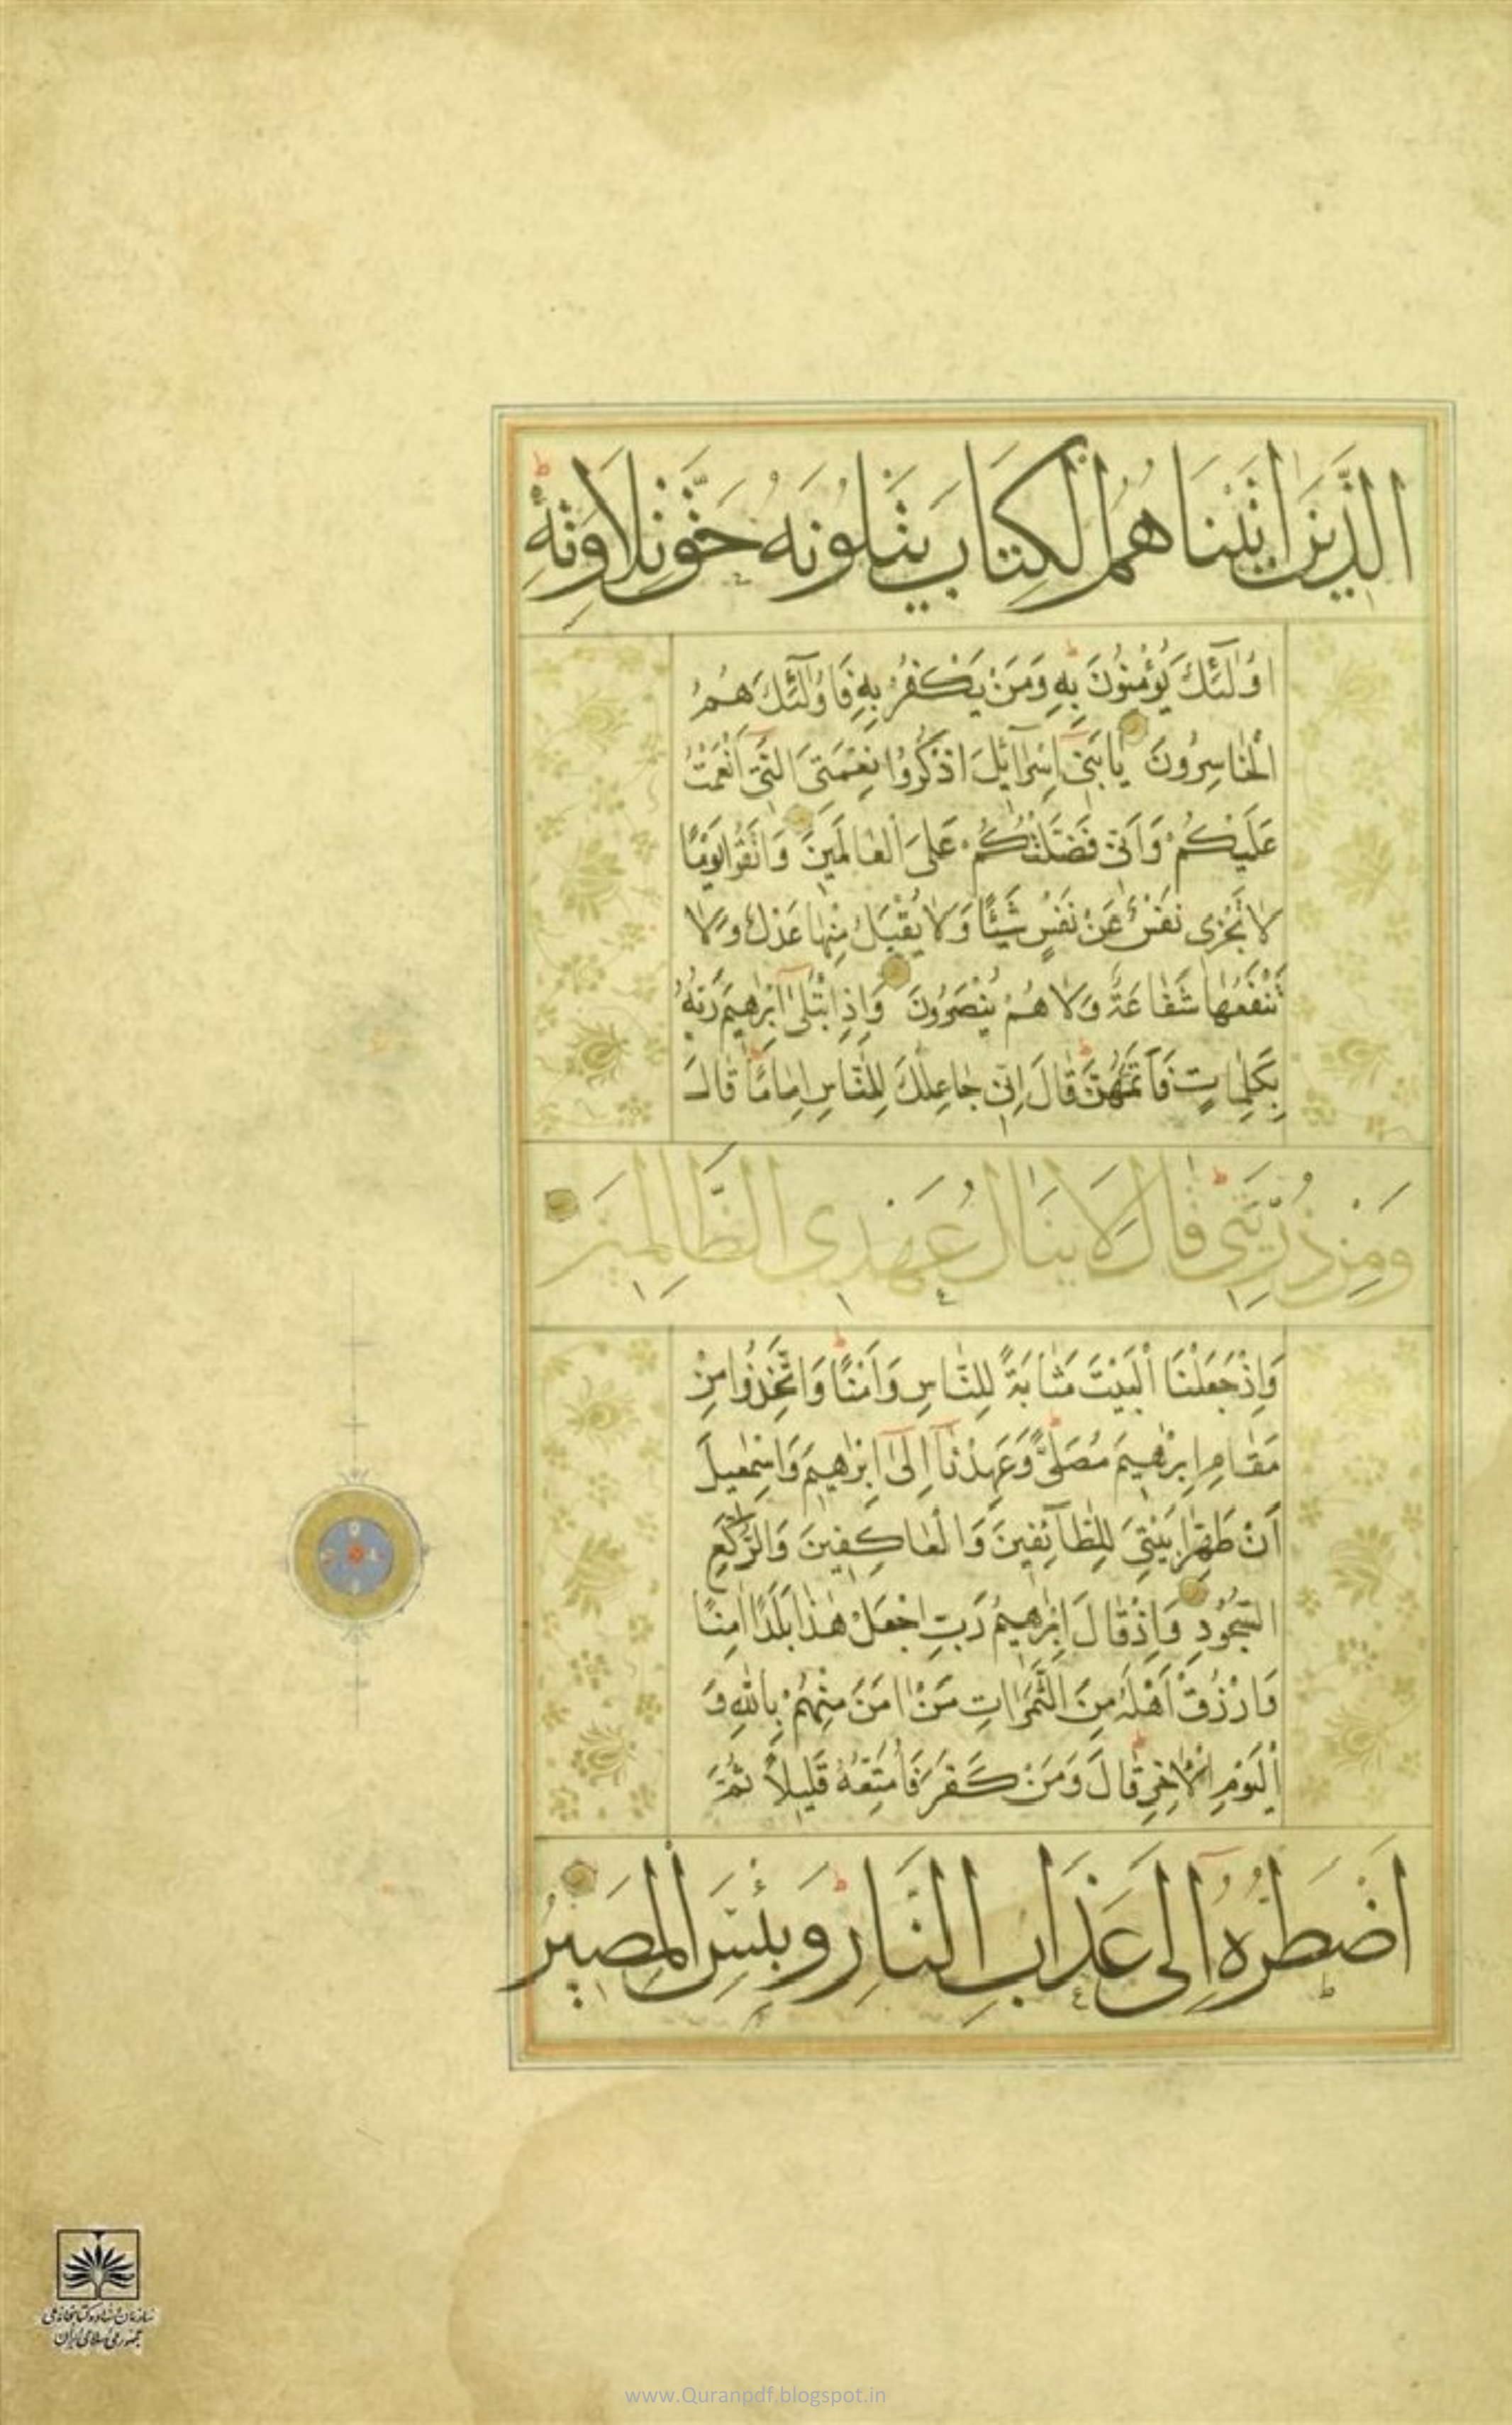 الَّذِينَ اٰتَيْنَاهُمُ الْكِتَابَ يَتْلُونَهُ حَقَّ تِلَاوَتِهِ
اُولٰٓئِكَ يُؤْمِنُونَ بِهِ وَمَنْ يَكْفُرْ بِهِ فَاُولٰٓئِكَ هُمُ
الْخَاسِرُونَ يَابَنِىٓ اِسْرَآئِلَ اذْكُرُوا نِعْمَتِىَ الَّتِىٓ اَنْعَمْتُ
عَلَيْكُمْ وَاَنِّى فَضَّلْتُكُمْ عَلَى الْعَالَمِينَ وَاتَّقُوا يَوْمًا
لَا تَجْزِى نَفْسٌ عَنْ نَفْسٍ شَيْئًا وَلَا يُقْبَلُ مِنْهَا عَدْلٌ وَلَا
تَنْفَعُهَا شَفَاعَةٌ وَلَا هُمْ يُنْصَرُونَ وَاِذِ ابْتَلٰىٓ اِبْرٰهِيمَ رَبُّهُ
بِكَلِمَاتٍ فَاَتَمَّهُنَّ قَالَ اِنِّى جَاعِلُكَ لِلنَّاسِ اِمَامًا قَالَ
وَمِنْ ذُرِّيَّتِى قَالَ لَا يَنَالُ عَهْدِى الظَّالِمِينَ
وَاِذْ جَعَلْنَا الْبَيْتَ مَثَابَةً لِلنَّاسِ وَاَمْنًا وَاتَّخِذُوا مِنْ
مَقَامِ اِبْرٰهِيمَ مُصَلًّى وَعَهِدْنَآ اِلٰىٓ اِبْرٰهِيمَ وَاِسْمٰعِيلَ
اَنْ طَهِّرَا بَيْتِىَ لِلطَّآئِفِينَ وَالْعَاكِفِينَ وَالرُّكَّعِ
السُّجُودِ وَاِذْ قَالَ اِبْرٰهِيمُ رَبِّ اجْعَلْ هٰذَا بَلَدًا اٰمِنًا
وَارْزُقْ اَهْلَهُ مِنَ الثَّمَرَاتِ مَنْ اٰمَنَ مِنْهُمْ بِاللّٰهِ وَ
الْيَوْمِ الْاٰخِرِ قَالَ وَمَنْ كَفَرَ فَاُمَتِّعُهُ قَلِيلًا ثُمَّ
اَضْطَرُّهُٓ اِلٰى عَذَابِ النَّارِ وَبِئْسَ الْمَصِيرُ
سازمان اسناد و کتابخانه ملی
جمهوری اسلامی ایران
www.Quranpdf.blogspot.in